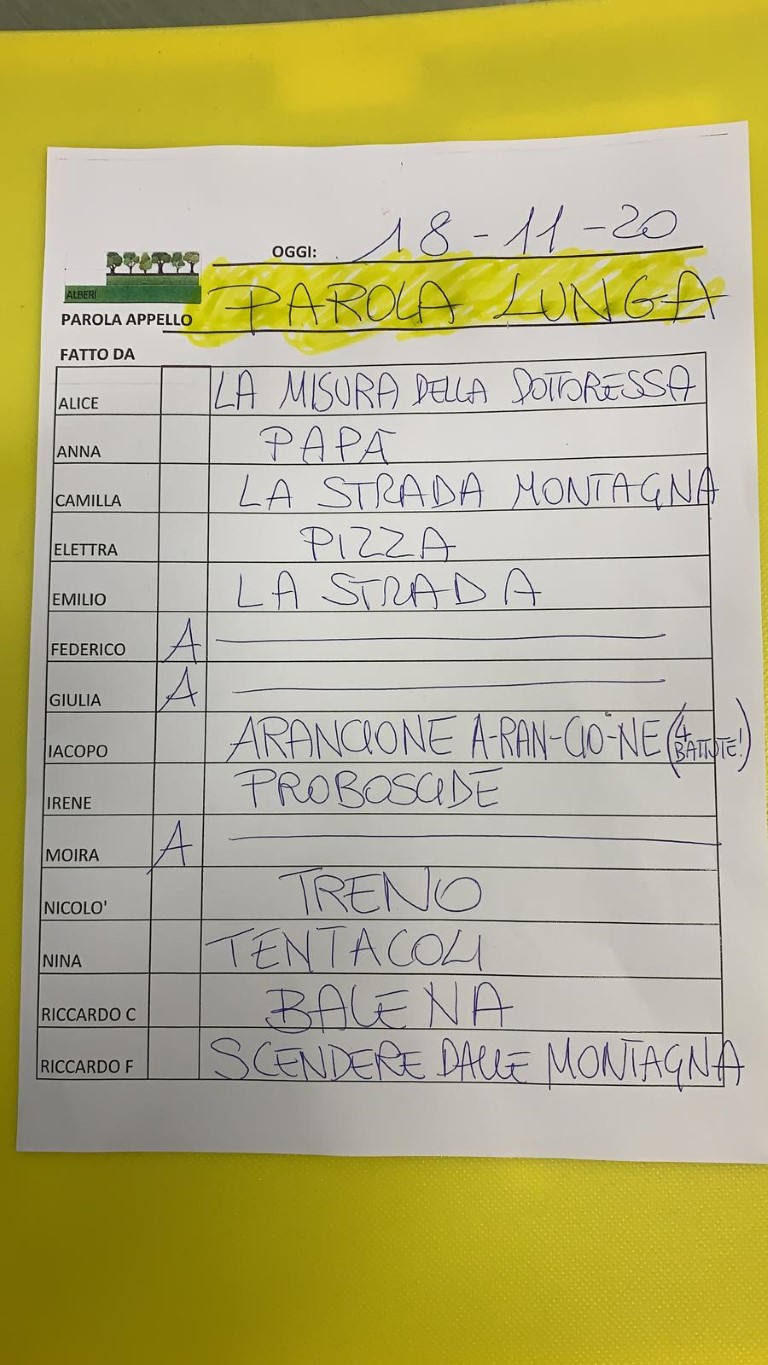 OGGI: 18-11-20
ALBERI
PAROLA APPELLO PAROLA LUNGA
FATTO DA
ALICE LA MISURA DELLA DOTTORESSA
ANNA PAPÀ
CAMILLA LA STRADA MONTAGNA
ELETTRA PIZZA
EMILIO LA STRADA
FEDERICO A
GIULIA A
IACOPO ARANCIONE A-RAN-CIO-NE (4 BATTUTE!)
IRENE PROBOSCIDE
MOIRA A
NICOLO' TRENO
NINA TENTACOLI
RICCARDO C BALENA
RICCARDO F SCENDERE DALLE MONTAGNA